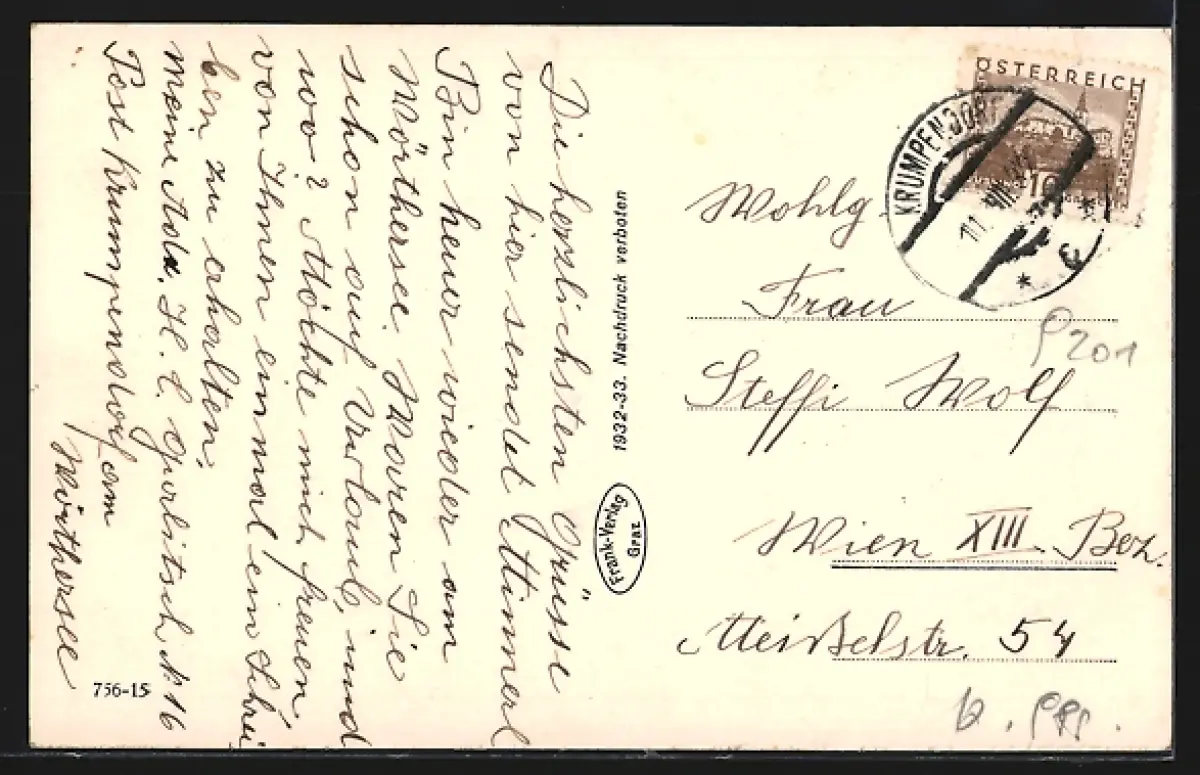 Die herzlichsten Grüsse
von hier sendet Mimmerl
Bin heuer wieder am
Wörthersee. Waren Sie
schon auf Urlaub, und
wo? Möchte mich freuen,
von Ihnen einmal ein Schrei
ben zu erhalten.
meine Adr. H. C. Goritsch Nr 16
Post Krumpendorf am
Wörthersee
756-15
1932-33. Nachdruck verboten
Frank-Verlag
Graz
ÖSTERREICH
10
KRUMPENDORF
11. VIII.
Wohlg.
Frau
Steffi Wolf
Wien XIII. Bez.
Meißelstr. 54